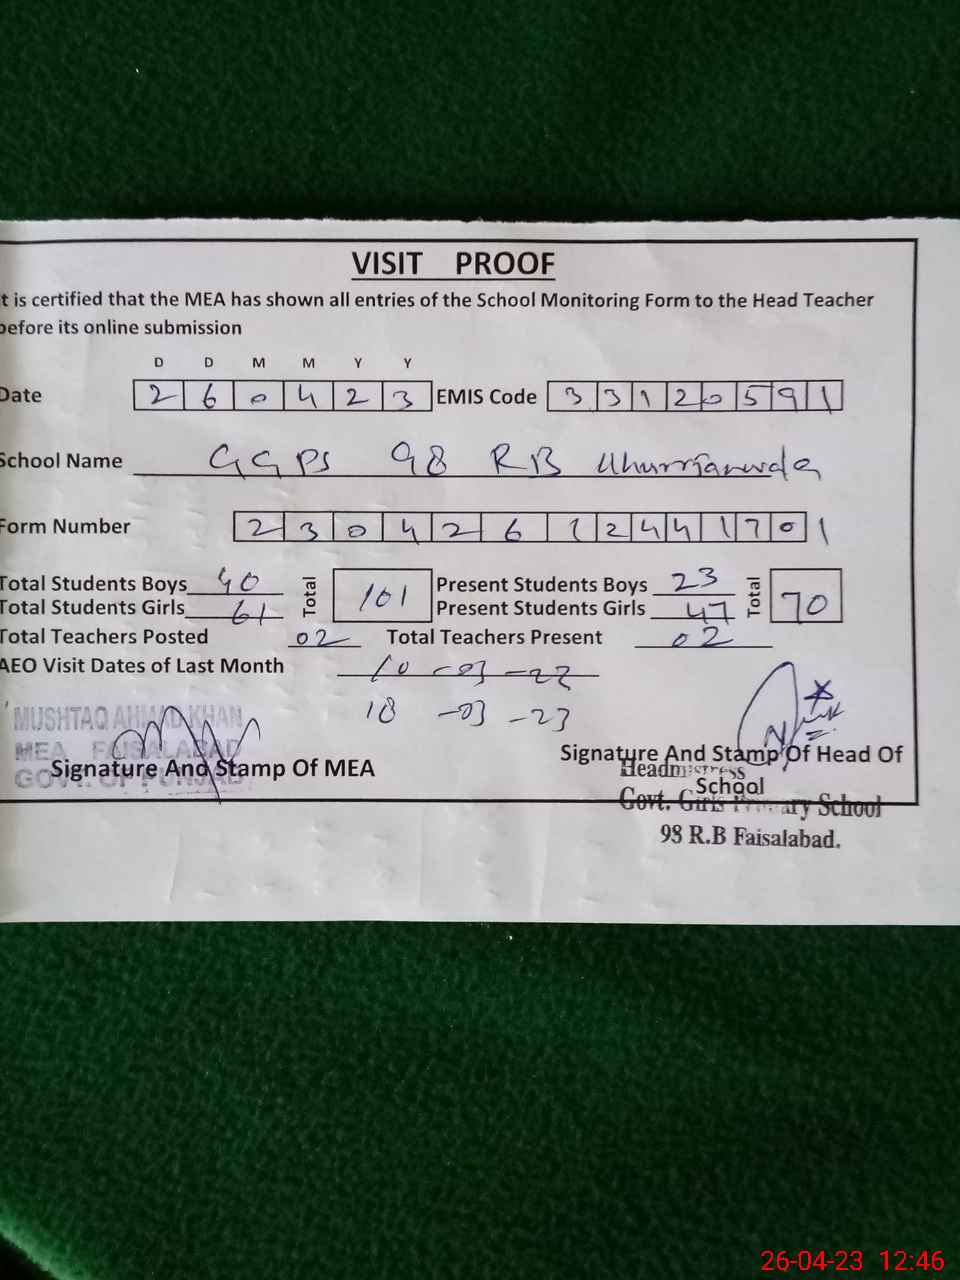 VISIT PROOF
t is certified that the MEA has shown all entries of the School Monitoring Form to the Head Teacher
before its online submission
D D M M Y Y
Date 2 6 0 4 2 3 EMIS Code 3 3 1 2 0 5 9 1
School Name GGPS 98 RB
Form Number 2 3 0 4 2 6 1 2 4 4 1 7 0 1
Total Students Boys 40 Total 101 Present Students Boys 23 Total 70
Total Students Girls 61 Present Students Girls 47
Total Teachers Posted 02 Total Teachers Present 02
AEO Visit Dates of Last Month 10-03-22
18-03-23
MUSHTAQ AHMAD KHAN
MEA FAISALABAD
GOVT. OF PUNJAB
Signature And Stamp Of MEA
Signature And Stamp Of Head Of
School
Headmistress
Govt. Girls Primary School
98 R.B Faisalabad.
26-04-23 12:46